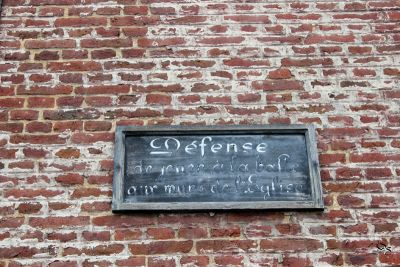 Défense
de jouer à la balle
aux murs de l'Eglise